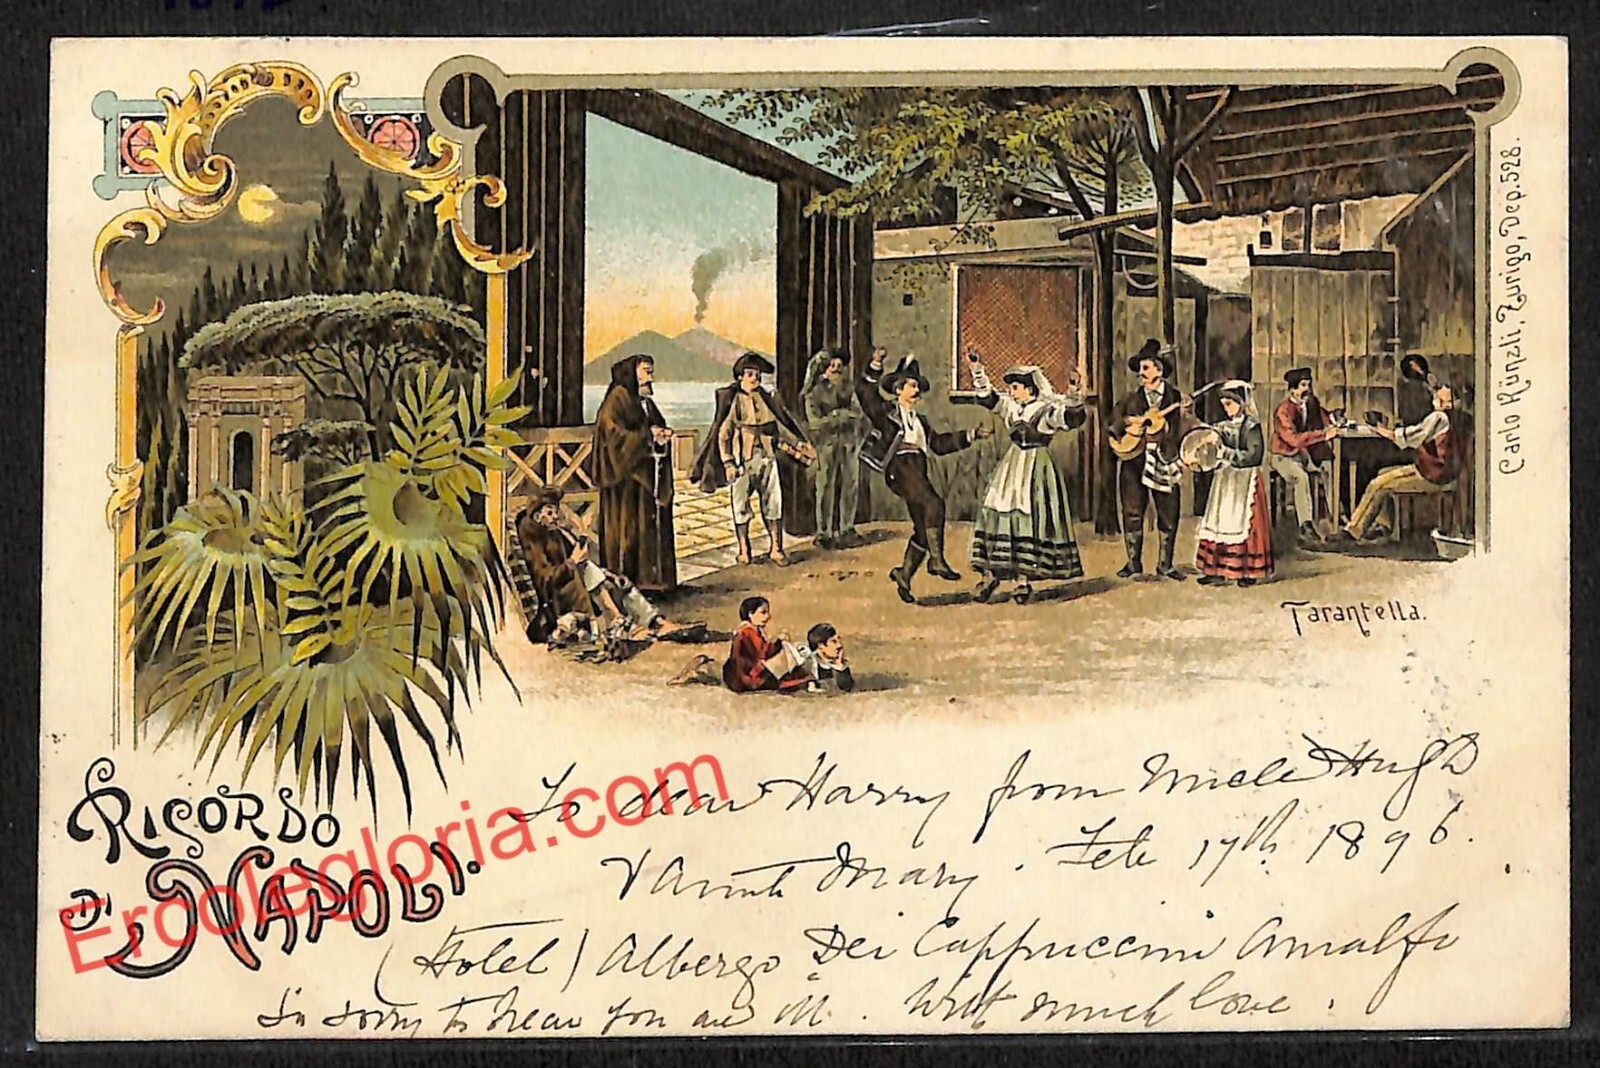 Carlo Künzli, Zurigo, Dep. 528.
Tarantella.
RICORDO
DI NAPOLI.
Ercolegloria.com
To dear Harry from Uncle Hugh
& Aunt Mary. Feb 17th 1896.
(Hotel) Albergo Dei Cappuccini Amalfi
So sorry to hear you are ill. With much love.